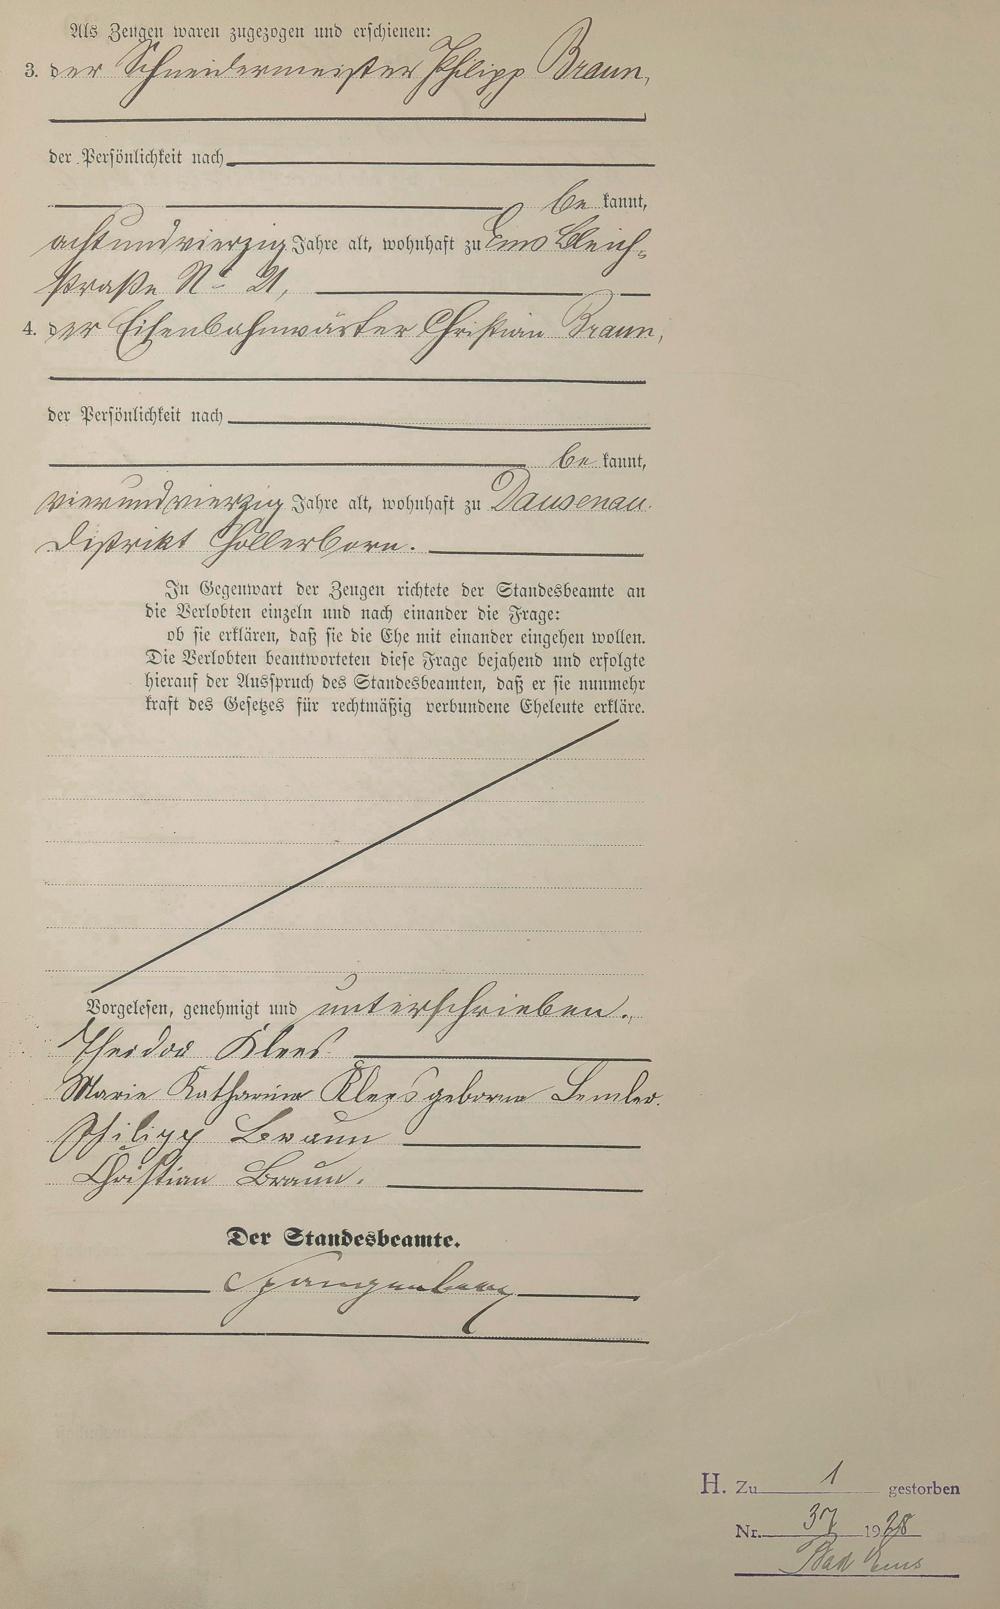 Als Zeugen waren zugezogen und erschienen:
3. der Schneidermeister Philipp Braun,
der Persönlichkeit nach
be kannt,
achtundvierzig Jahre alt, wohnhaft zu Ems Bleich-
straße No 21,
4. der Eisenbahnwärter Christian Braun,
der Persönlichkeit nach
be kannt,
vierundvierzig Jahre alt, wohnhaft zu Dausenau.
Distrikt Hollerborn.
In Gegenwart der Zeugen richtete der Standesbeamte an
die Verlobten einzeln und nach einander die Frage:
ob sie erklären, daß sie die Ehe mit einander eingehen wollen.
Die Verlobten beantworteten diese Frage bejahend und erfolgte
hierauf der Ausspruch des Standesbeamten, daß er sie nunmehr
kraft des Gesetzes für rechtmäßig verbundene Eheleute erkläre.
Vorgelesen, genehmigt und unterschrieben.
Theodor Klees
Marie Katharina Klees geborne Semler.
Philipp Braun
Christian Braun.
Der Standesbeamte.
Spangenberg
H. Zu 1 gestorben
Nr. 37 1928
Bad Ems